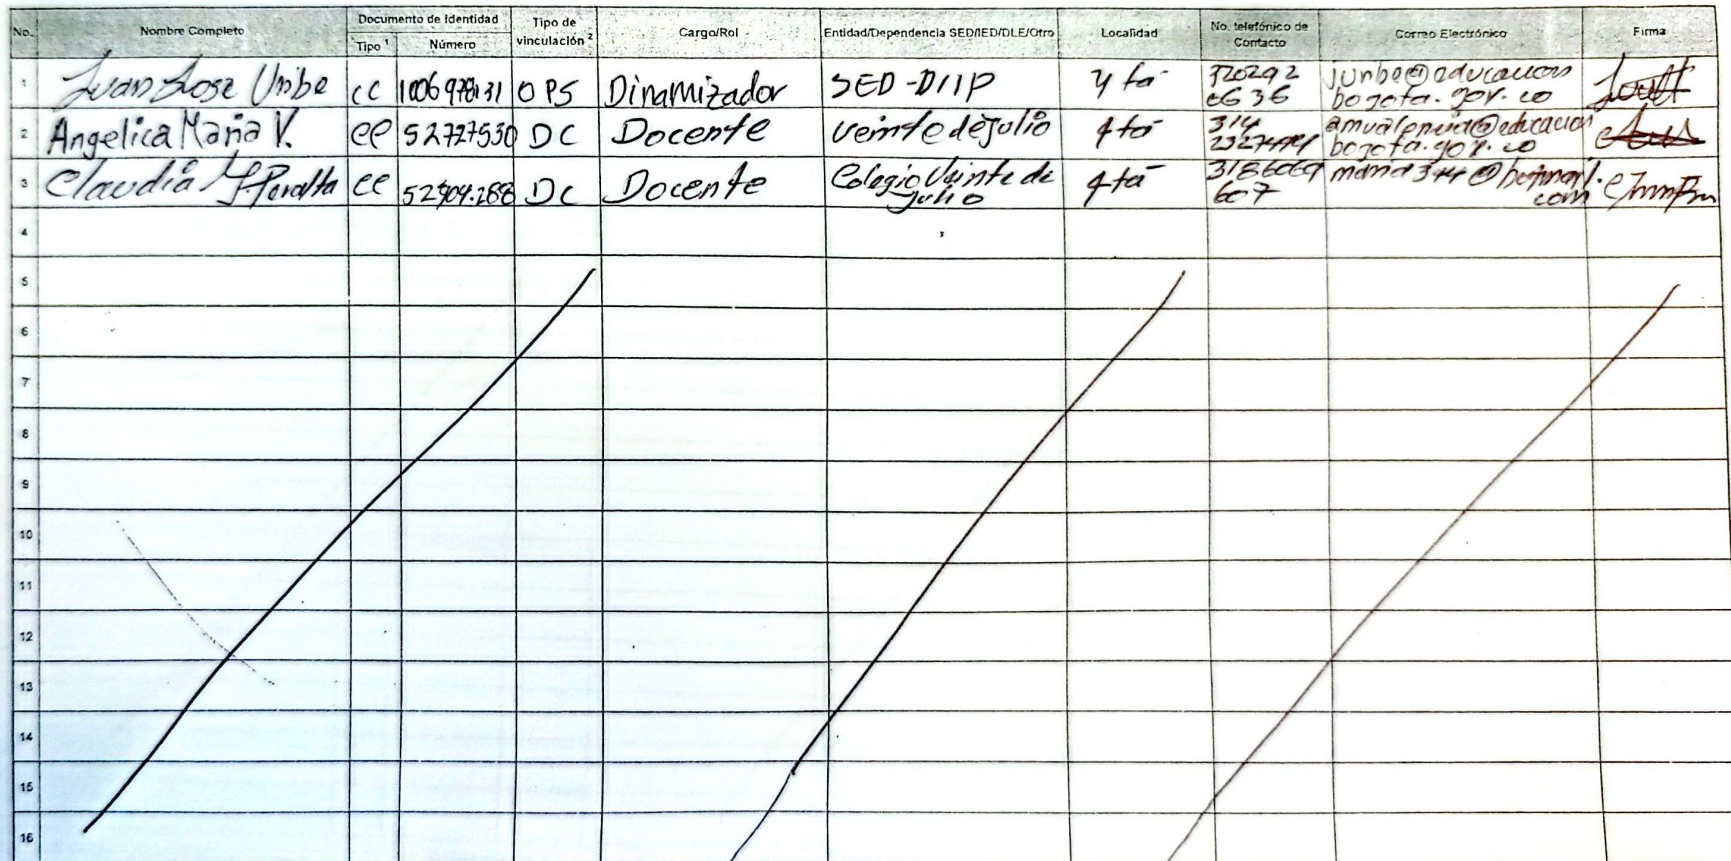 No. Nombre Completo Documento de Identidad Tipo de vinculación 2 Cargo/Rol Entidad/Dependencia SED/IED/DLE/Otro Localidad No. telefónico de Contacto Correo Electrónico Firma
Tipo 1 Número
1 Juan Jose Uribe CC OPS Dinamizador SED-DIIP 4ta 320292 6636 juribe@educacion bogota.gov.co
2 Angelica Maria V. CC 52727530 DC Docente Veinte de julio 4ta 314 amvalencia@educacion bogota.gov.co
3 Claudia M Peralta CC 52904.288 DC Docente Colegio Veinte de julio 4ta 3186069 607
4
5
6
7
8
9
10
11
12
13
14
15
16